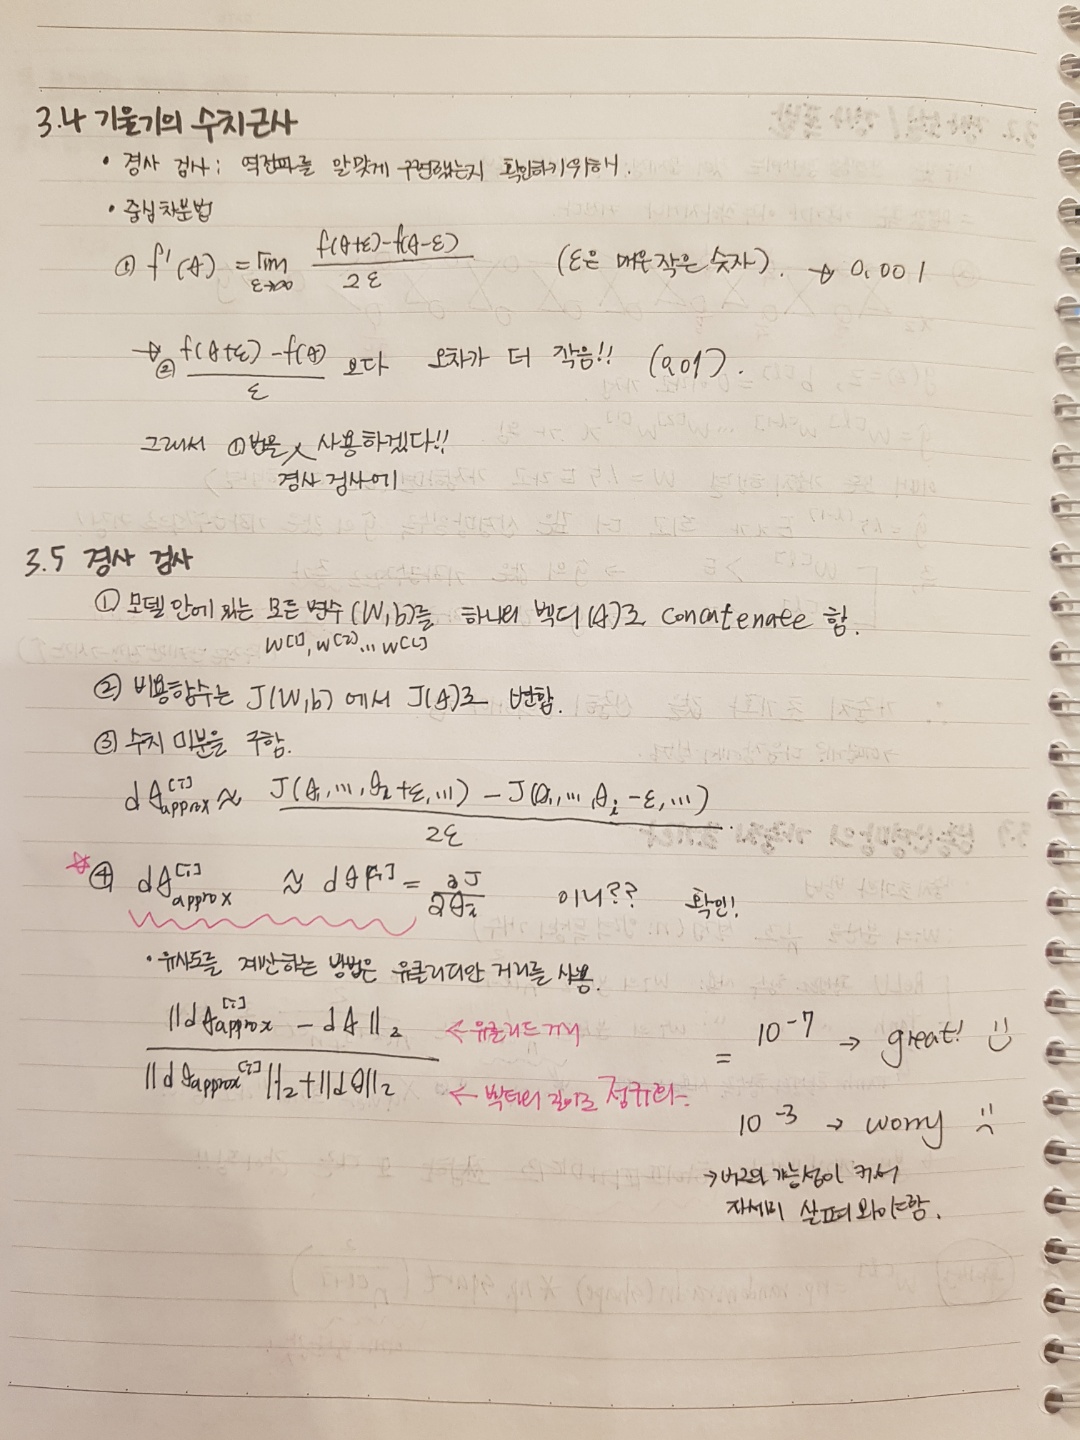 3.4 기울기의 수치근사
• 경사 검사: 역전파를 알맞게 구현했는지 확인하기위해.
• 중심차분법
① f'(θ) = lim ε→∞ f(θ+ε)-f(θ-ε) / 2ε (ε은 매우 작은 숫자). → 0.001
→ ② f(θ+ε)-f(θ) / ε 보다 오차가 더 작음!! (0.01).
그래서 ①법을 사용하겠다!!
경사 검사에
3.5 경사 검사
① 모델 안에 있는 모든 변수(W,b)를 하나의 벡터(θ)로 concatenate 함.
W[1], W[2]... W[L]
② 비용함수는 J(W,b)에서 J(θ)로 변함.
③ 수치 미분을 구함.
dθ[i]approx ≈ J(θ1, ..., θi+ε, ...) - J(θ1, ..., θi-ε, ...) / 2ε
☆④ dθ[i]approx ≈ dθ[i] = ∂J / ∂θi 이니?? 확인!
• 유사도를 계산하는 방법은 유클리디안 거리를 사용.
||dθ[i]approx - dθ||2 ← 유클리드 거리
||dθapprox[i]||2 + ||dθ||2 ← 벡터의 길이로 정규화
= 10⁻⁷ → great!
10⁻³ → worry
→ 버그의 가능성이 커서
자세히 살펴봐야함.